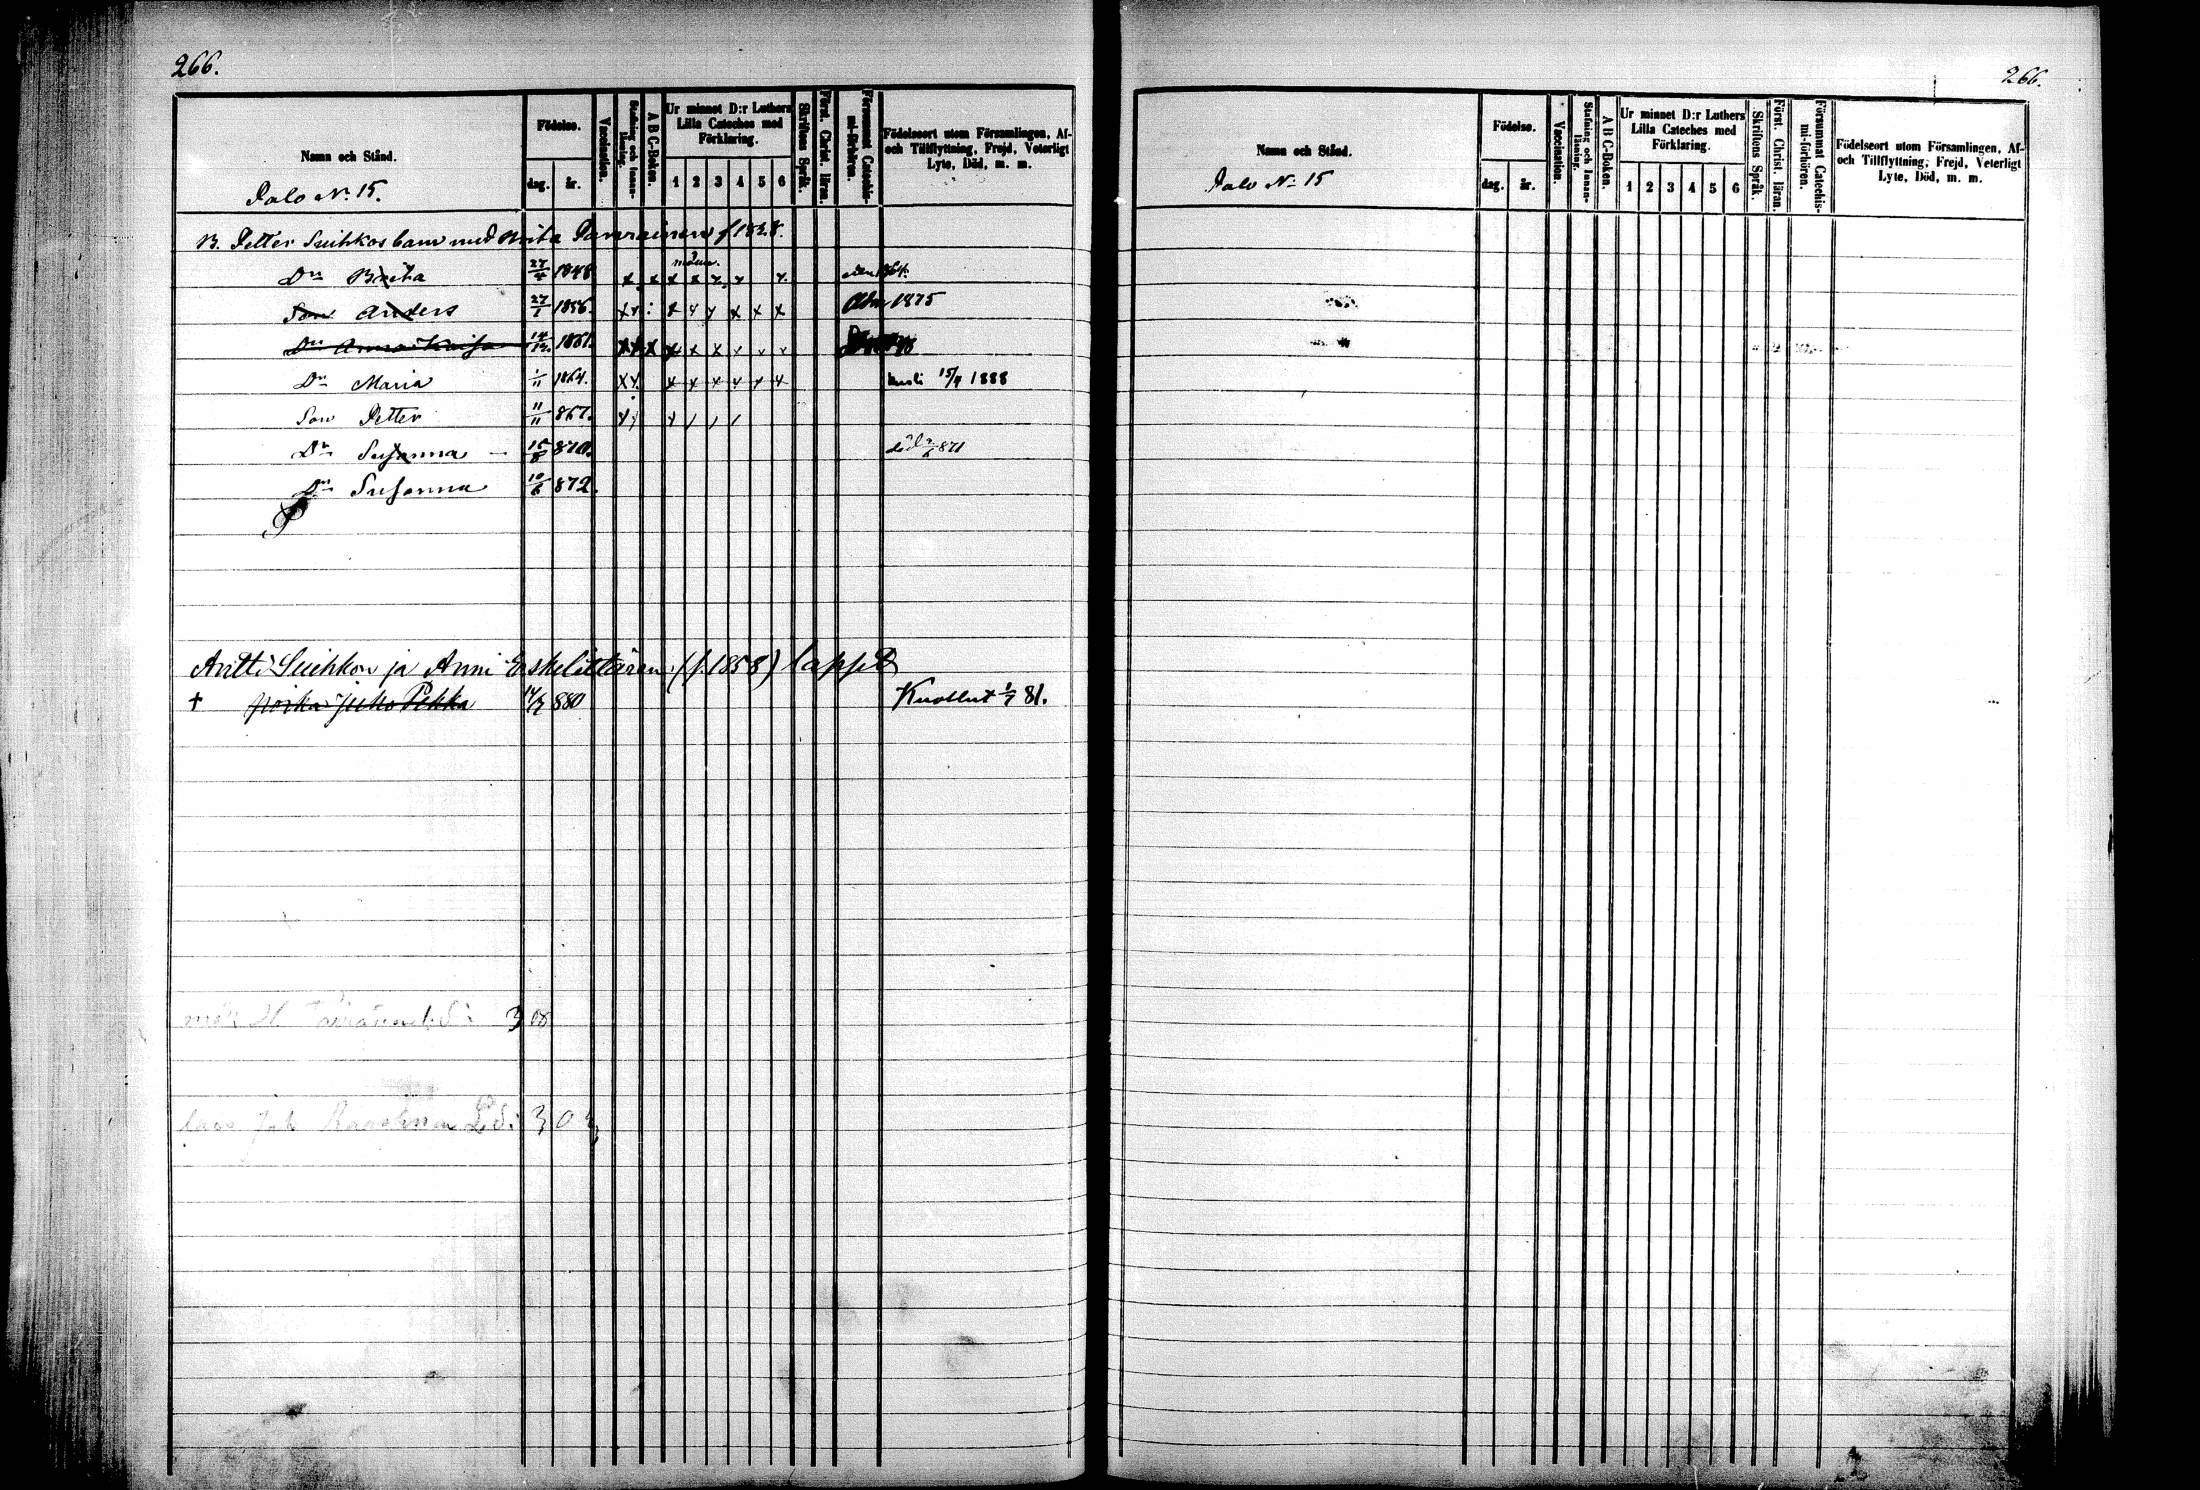 266.
Namn och Stånd.
Födelse.
dag. år.
Vaccination.
Stafning och Innan-läsning.
A B C-Boken.
Ur minnet D:r Luthers Lilla Cateches med Förklaring.
1 2 3 4 5 6
Skriftens Språk.
Först. Christ. läran.
Försummat Catechis-mi-förhören.
Födelseort utom Församlingen, Af-
och Tillflyttning, Frejd, Veterligt
Lyte, Död, m. m.
Palo No 15.
B. Petter Suihkos barn med Brita f 1828.
Dr Brita 27/4 1848
Son Anders 27/1 1856. 1875
Dr Anna Kaisa 14/12 1861.
Dr Maria 1/11 1864. 15/4 1888
Son Petter 11/11 867.
Dr Susanna 15/8 870. död 871
Dr Susanna 10/6 872.
Antti Suihkon ja Anni Eskelittären (f. 1858) lapset
† poika Juho Pekka 14/7 880 Kuollut 1/7 81.
266.
Namn och Stånd.
Födelse.
dag. år.
Vaccination.
Stafning och Innan-läsning.
A B C-Boken.
Ur minnet D:r Luthers Lilla Cateches med Förklaring.
1 2 3 4 5 6
Skriftens Språk.
Först. Christ. läran.
Försummat Catechis-mi-förhören.
Födelseort utom Församlingen, Af-
och Tillflyttning, Frejd, Veterligt
Lyte, Död, m. m.
Palo No 15